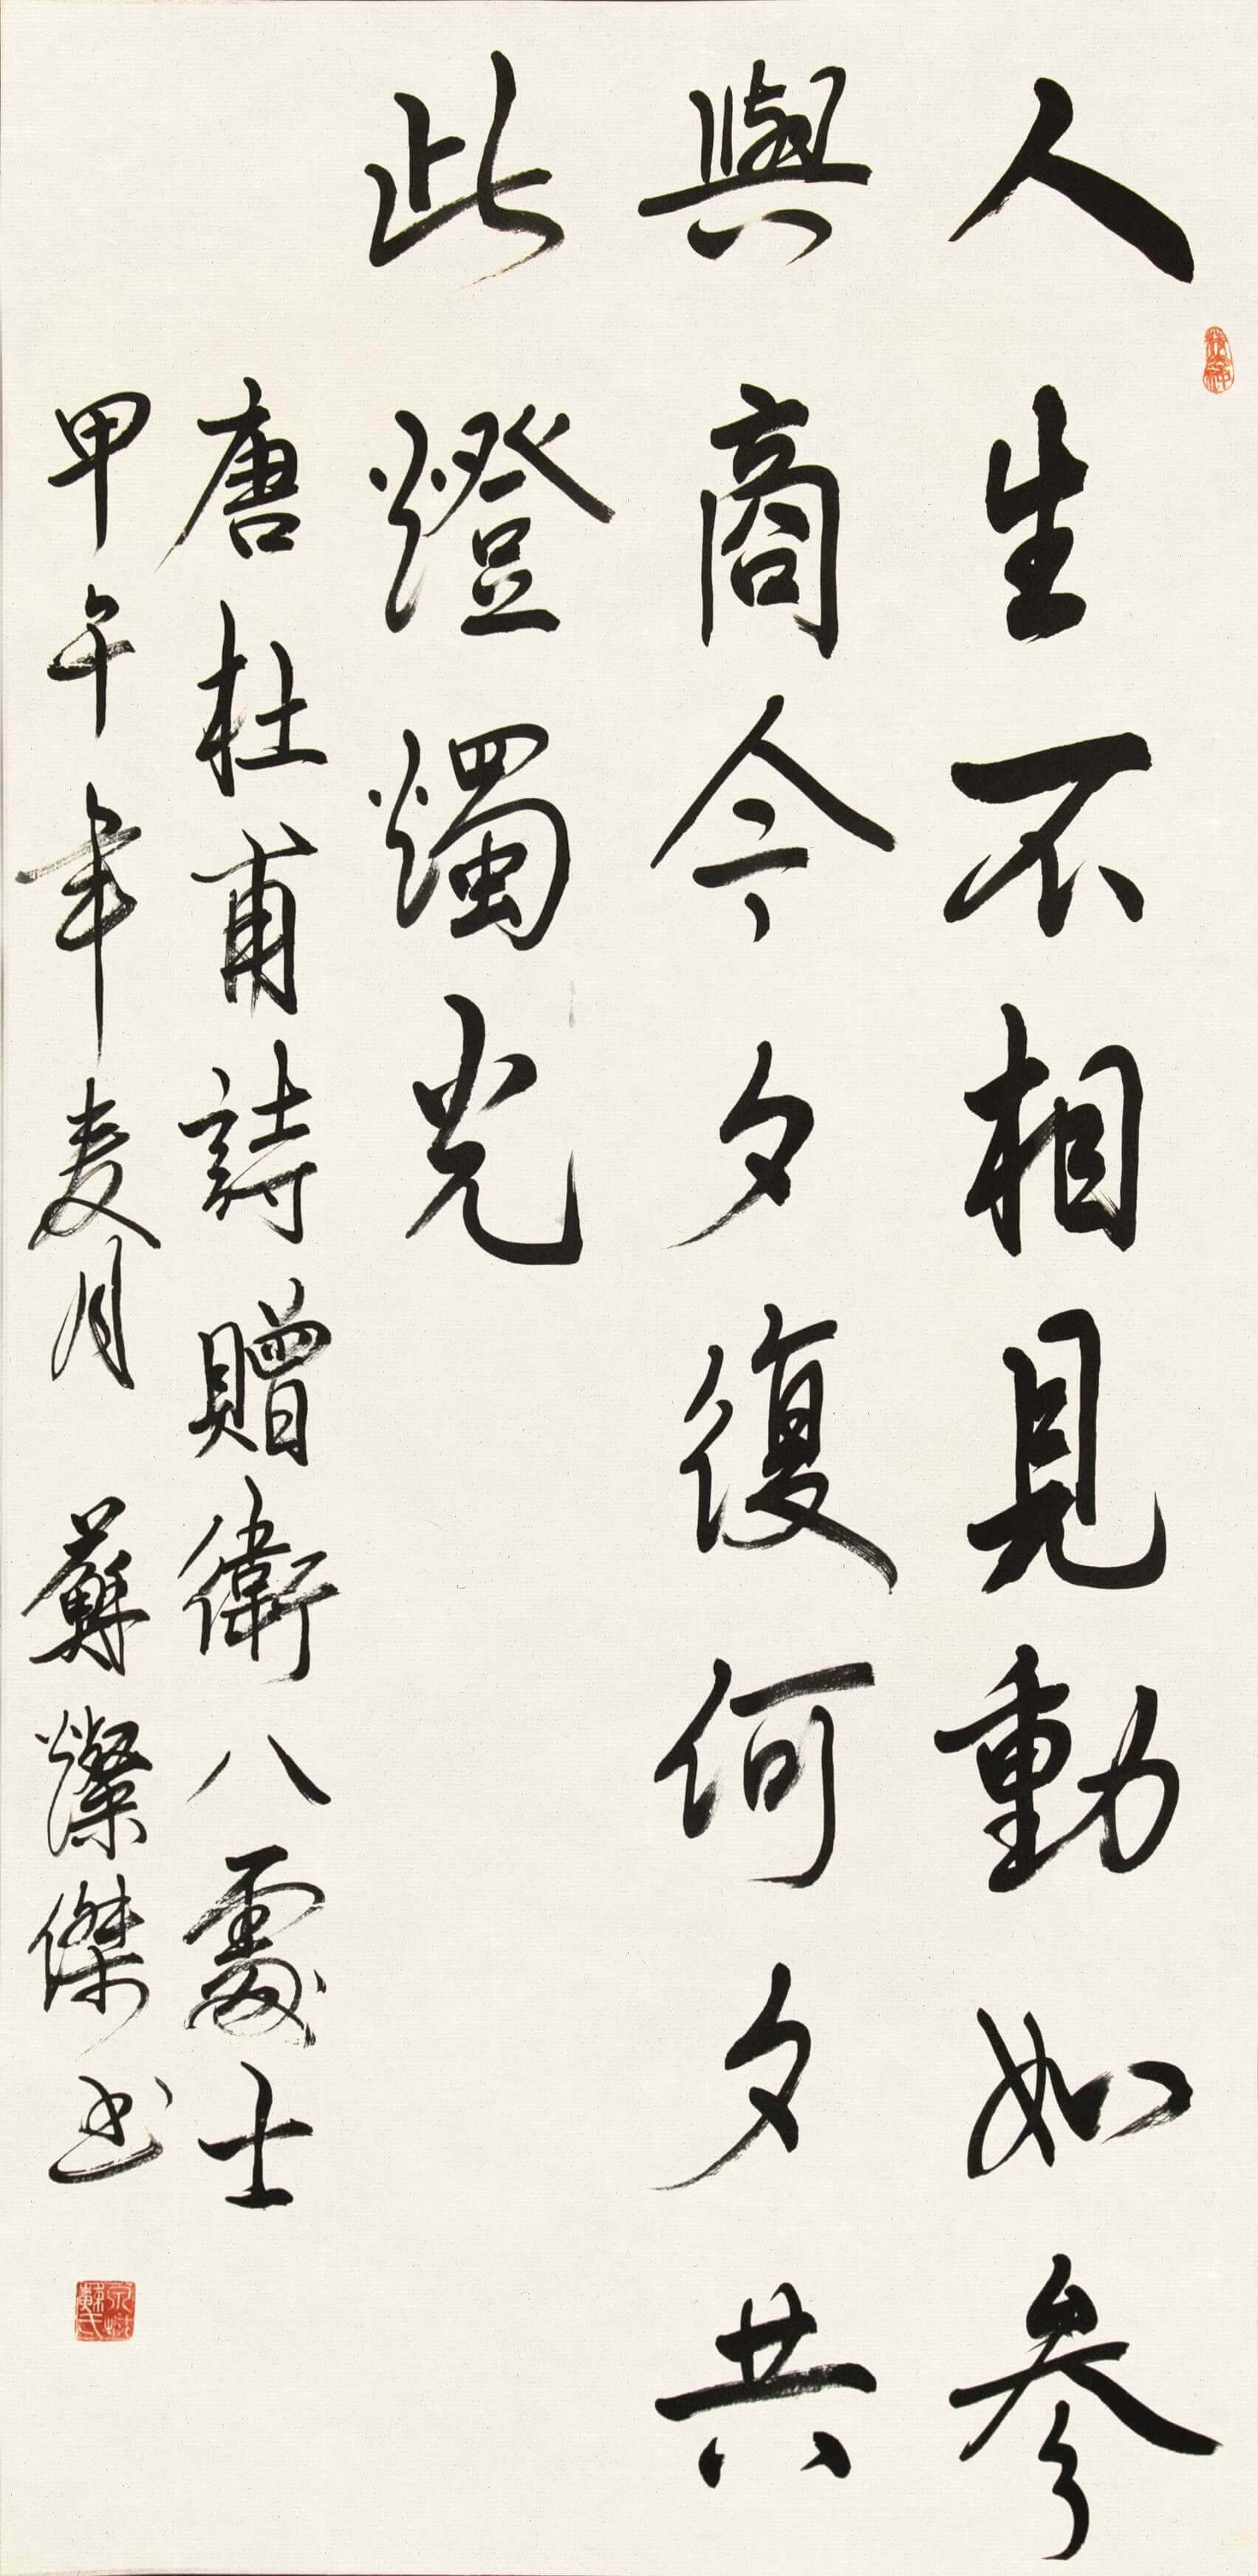 人生不相見動如參
與商今夕復何夕共
此燈燭光
唐杜甫詩贈衛八處士
甲午年夏月 蘇燦傑书